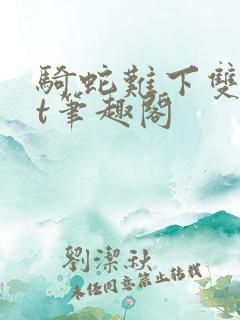 騎蛇難下雙
t筆趣閣
劉潔秋
未经同意禁止转载